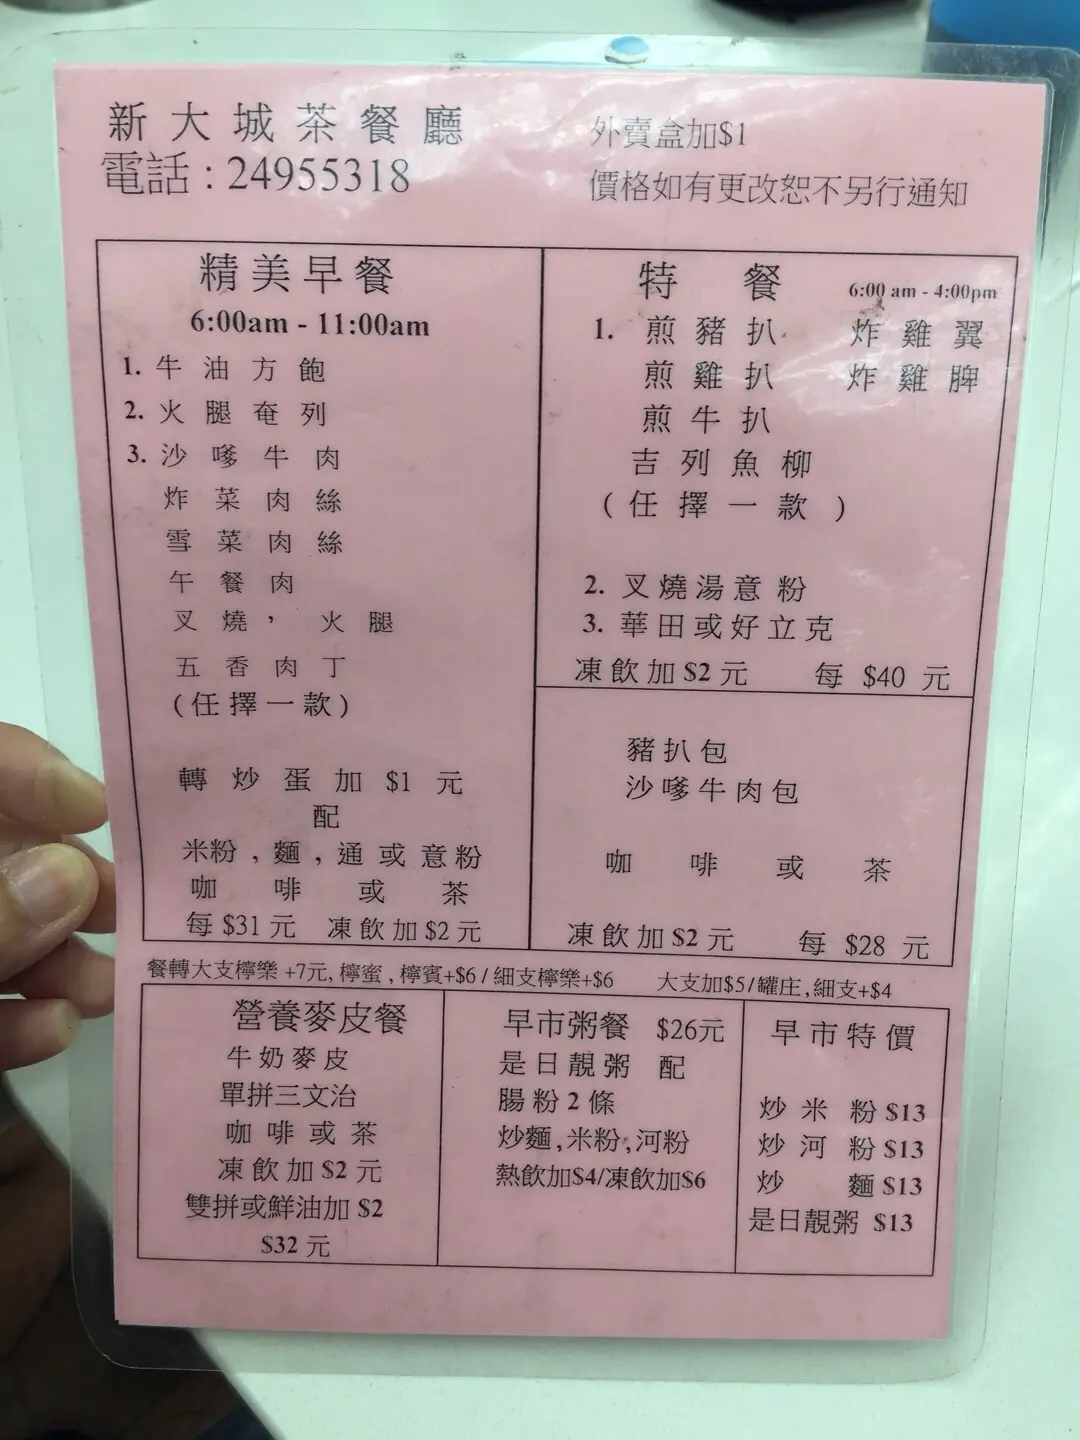 新大城茶餐廳
電話：24955318
外賣盒加$1
價格如有更改恕不另行通知
精美早餐
6:00am - 11:00am
1. 牛油方飽
2. 火腿奄列
3. 沙嗲牛肉
炸菜肉絲
雪菜肉絲
午餐肉
叉燒，火腿
五香肉丁
(任擇一款)
轉炒蛋加 $1 元
配
米粉，麵，通或意粉
咖啡或茶
每 $31 元 凍飲加 $2 元
特餐 6:00 am - 4:00pm
1. 煎豬扒 炸雞翼
煎雞扒 炸雞脾
煎牛扒
吉列魚柳
(任擇一款)
2. 叉燒湯意粉
3. 華田或好立克
凍飲加 $2 元 每 $40 元
豬扒包
沙嗲牛肉包
咖啡或茶
凍飲加 $2 元 每 $28 元
餐轉大支檸樂 +7元, 檸蜜, 檸賓+$6 / 細支檸樂+$6 大支加$5/罐庄,細支+$4
營養麥皮餐
牛奶麥皮
單拼三文治
咖啡或茶
凍飲加 $2 元
雙拼或鮮油加 $2
$32 元
早市粥餐 $26元
是日靚粥 配
腸粉 2 條
炒麵,米粉,河粉
熱飲加$4/凍飲加$6
早市特價
炒米粉 $13
炒河粉 $13
炒麵 $13
是日靚粥 $13